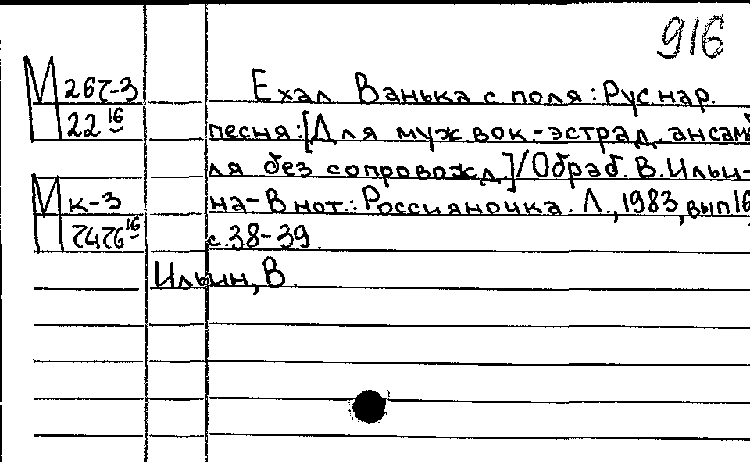 916
М 267-3
22 16
Ехал Ванька с поля: Рус. нар.
песня: [Для муж вок-эстрад. ансамб
ля без сопровожд]/Обраб. В. Ильи-
на-В нот.: Россияночка. Л., 1983, вып 16,
с. 38-39.
М к-3
7476 16
Ильин, В.